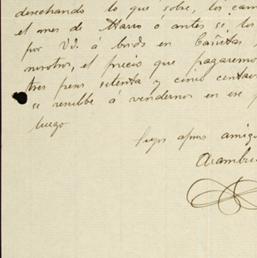 desechando lo que sobre, los cam
el mes de Mario ó antes si los
por VV. á bordo en Cañetas
nosotros, el precio que pagaremos
tres pesos setenta y cinco centav
se resuelve á vendernos en ese p
luego
Suyos afmos amigo
Arambur